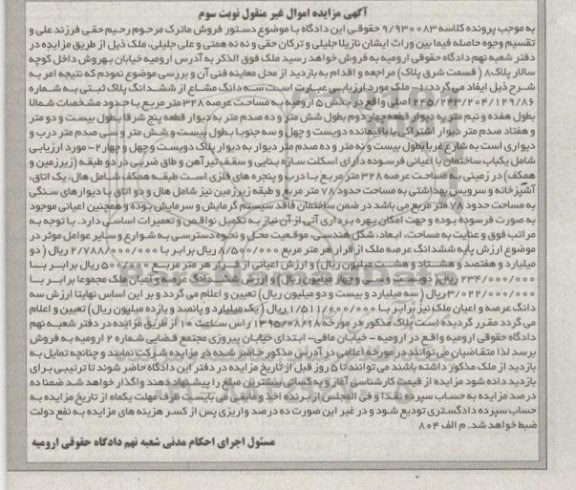 آگهی مزایده اموال غیر منقول نوبت سوم
به موجب پرونده کلاسه ۹/۹۳۰۰۸۳ حقوقی این دادگاه با موضوع دستور فروش ماترک مرحوم رحیم حقی فرزند علی و
تقسیم وجوه حاصله فیما بین وراث ایشان نازیلا جلیلی و ترکان حقی و ننه همتی و علی جلیلی، ملک ذیل از طریق مزایده در
دفتر شعبه نهم دادگاه حقوقی ارومیه به فروش خواهد رسید ملک فوق الذکر به آدرس ارومیه خیابان بهروش داخل کوچه
سالار پلاک۸ ( قسمت شرق پلاک) مراجعه و اقدام به بازدید از محل معاینه فنی آن و بررسی موضوع نمودم که نتیجه امر به
شرح ذیل ایفاد می گردد: ۱- ملک مورد ارزیابی عبارت است سه دانگ مشاع از ششدانگ پلاک ثبتی به شماره
۲۴۵/۲۴۳/۲۰۴/۱۲۹/۸۶ اصلی واقع در بخش ۵ ارومیه به مساحت عرصه ۳۲۸ متر مربع با حدود مشخصات شمالا
بطول هفده و نیم متر به دیوار قطعه چهار دوم بطول شش متر و ده صدم متر به دیوار قطعه پنج شرقا بطول بیست و دو متر
و هفتاد صدم متر دیوار اشتراکی با باقیمانده دویست و چهل و سه جنوبا بطول بیست و شش متر و سی صدم متر درب و
دیواری است به شارع غربا بطول بیست و نه متر و ده صدم متر دیوار به دیوار پلاک دویست و چهل و چهار ۲- مورد ارزیابی
شامل یکباب ساختمان با اعیانی فرسوده دارای اسکلت سازه بنایی و سقف تیرآهن و طاق ضربی در دو طبقه (زیرزمین و
همکف) در زمینی به مساحت عرصه ۳۲۸ متر مربع با درب و پنجره های فلزی است طبقه همکف شامل هال، یک اتاق،
آشپزخانه و سرویس بهداشتی به مساحت حدود ۷۸ متر مربع و طبقه زیرزمین نیز شامل هال و دو اتاق با دیوارهای سنگی
به مساحت حدود ۷۸ متر مربع می باشد در ضمن ساختمان فاقد سیستم گرمایش و سرمایش بوده و همچنین اعیانی موجود
به صورت فرسوده بوده و جهت امکان بهره برداری آتی از آن نیاز به تکمیل نواقص و تعمیرات اساسی دارد. با توجه به
مراتب فوق و عنایت به مساحت، ابعاد، شکل هندسی، موقعیت محل و نحوه دسترسی به شوارع و سایر عوامل موثر در
موضوع ارزش پایه ششدانگ عرصه ملک از قرار هر متر مربع ۸/۵۰۰/۰۰۰ ریال برابر با ۲/۷۸۸/۰۰۰/۰۰۰ ریال ( دو
میلیارد و هفتصد و هشتاد و هشت میلیون ریال) و ارزش اعیانی از قرار هر متر مربع ریال برابر با
۲۳۴/۰۰۰/۰۰۰ ریال( دویست و سی و چهار میلیون ریال) و ارزش ششدانگ عرصه و اعیان ملک مجموعا برابر با
۳/۰۲۲/۰۰۰/۰۰۰ ریال ( سه میلیارد و بیست و دو میلیون ریال) تعیین و اعلام می گردد و بر این اساس نهایتا ارزش سه
دانگ عرصه و اعیان ملک نیز برابر با ۱/۵۱۱/۰۰۰/۰۰۰ ریال ( یک میلیارد و پانصد و یازده میلیون ریال) تعیین و اعلام
می گردد مقرر گردیده است پلاک مذکور در مورخه ۱۳۹۵/۰۸/۱۸ راس ساعت ۱۰ از طریق مزایده در دفتر شعبه نهم
دادگاه حقوقی ارومیه واقع در ارومیه - خیابان مافی- ابتدای خیابان پیروزی مجتمع قضایی شماره ۲ ارومیه به فروش
برسد لذا متقاضیان می توانند در مورخه اعلامی در آدرس مذکور حاضر شده در مزایده شرکت نمایند و چنانچه تمایل به
بازدید از ملک مذکور داشته باشند می توانند تا ۵ روز قبل از تاریخ مزایده در دفتر این دادگاه حاضر شوند تا ترتیبی برای
بازدید داده شود مزایده از قیمت کارشناسی آغاز و به کسانی بیشترین مبلغ را پیشنهاد دهند واگذار خواهد شد ضمنا ده
درصد مزایده به حساب سپرده نقدا و فی المجلس از برنده اخذ و مابقی می بایست ظرف مهلت یکماه از تاریخ مزایده به
حساب سپرده دادگستری تودیع شود و در غیر این صورت ده درصد واریزی پس از کسر هزینه های مزایده به نفع دولت
ضبط خواهد شد. م الف ۸۰۴
مسئول اجرای احکام مدنی شعبه نهم دادگاه حقوقی ارومیه